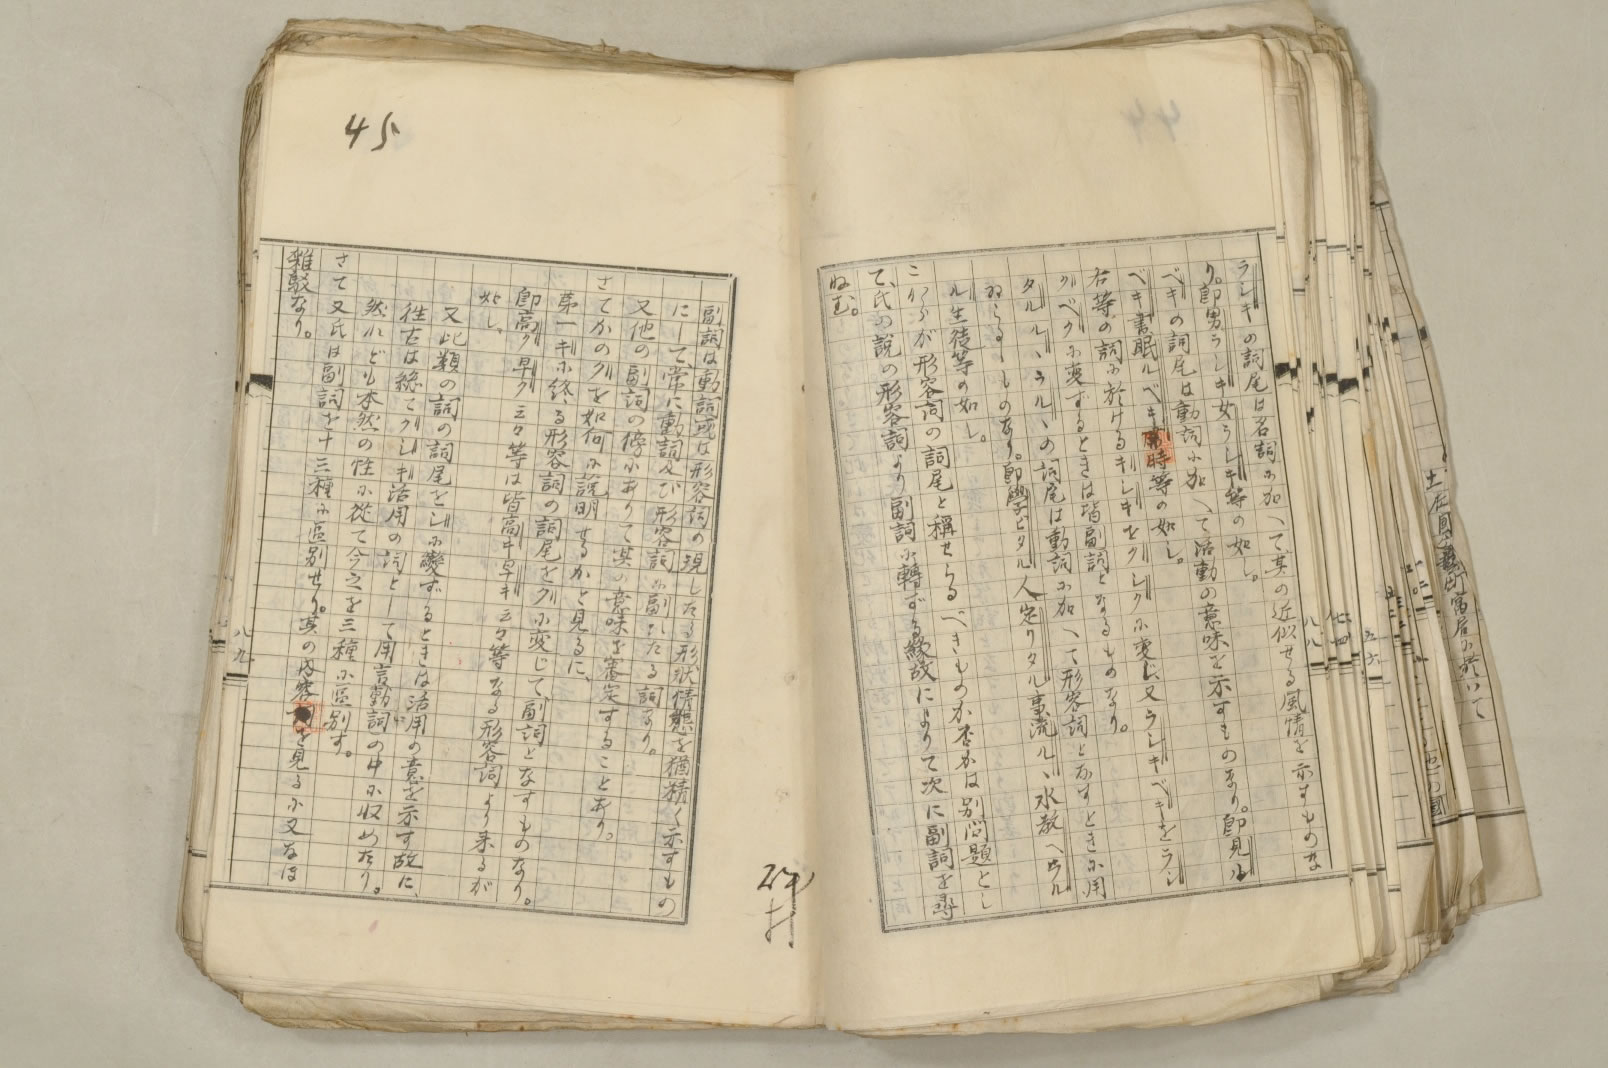 ラシキの詞尾は名詞に加へて其の近似せる風情を示すものな
り。即男ラシキ女ラシキ等の如し。
ベキの詞尾は動詞に加へて活動の意味を示すものなり。即見ル
ベキ書眠ルベキ時等の如し。
右等の詞に於けるキシキをクシクに変じ、又ラシキベキをラシ
クベクに変ずるときは皆副詞となるものなり。
タルル、ラルヽの詞尾は動詞に加へて形容詞となすときに用
ゐらるゝものあり。即學ビタル人定リタル事流ルヽ水教ヘラル
ル生徒等の如し。
これらが形容詞の詞尾と稱せらるべきものか否かは別問題とし
て、氏の説の形容詞より副詞に轉ずる縁故によりて次に副詞を尋
ねむ。
44
45
副詞は動詞或は形容詞の現したる形状情態を猶精く示すもの
にして、常に動詞及び形容詞に副ひたる詞なり。
又他の副詞の傍にありて其の意味を審定することあり。
さてかのクを如何に説明せるかと見るに、
第一キに終る形容詞の詞尾をクに変じて、副詞となすものなり。
即高ク早ク云々等は皆高キ早キ云々等なる形容詞より来るが
如し。
又此類の詞の詞尾をシに變ずるときは活用の意を示す故に、
往古は総てクシキ活用の詞として用言動詞の中に収めたり。
然れども本然の性に從て今之を三種に區別す。
さて又氏は副詞を十三種に區別せり。其の内容を見るに又なほ
雜駁なり。
八九
八八